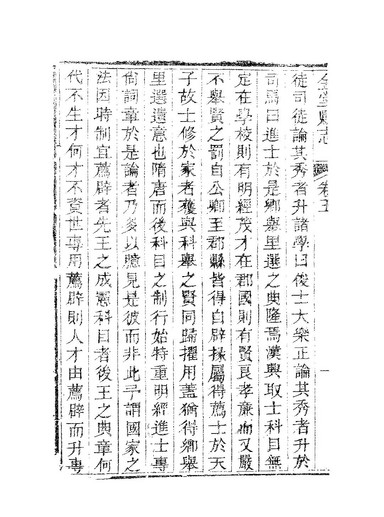 金堂縣志 卷五 一
徒司徒論其秀者升諸學曰俊士大樂正論其秀者升於
司馬曰進士於是鄉舉里選之典隆焉漢興取士科目無
定在學校則有明經茂才在郡國則有賢良孝廉而又嚴
不舉賢之罰自公卿至郡縣皆得自辟掾屬得薦士於天
子故士修於家者獲與科舉之賢同歸擢用蓋猶得鄉舉
里選遺意也隋唐而後科目之制行始特重明經進士專
尚詞章於是論者乃多以臆見是彼而非此予謂國家之
法因時制宜薦辟者先王之成憲科目者後王之典章何
代不生才何才不資世專用薦辟則人才由薦辟而升專